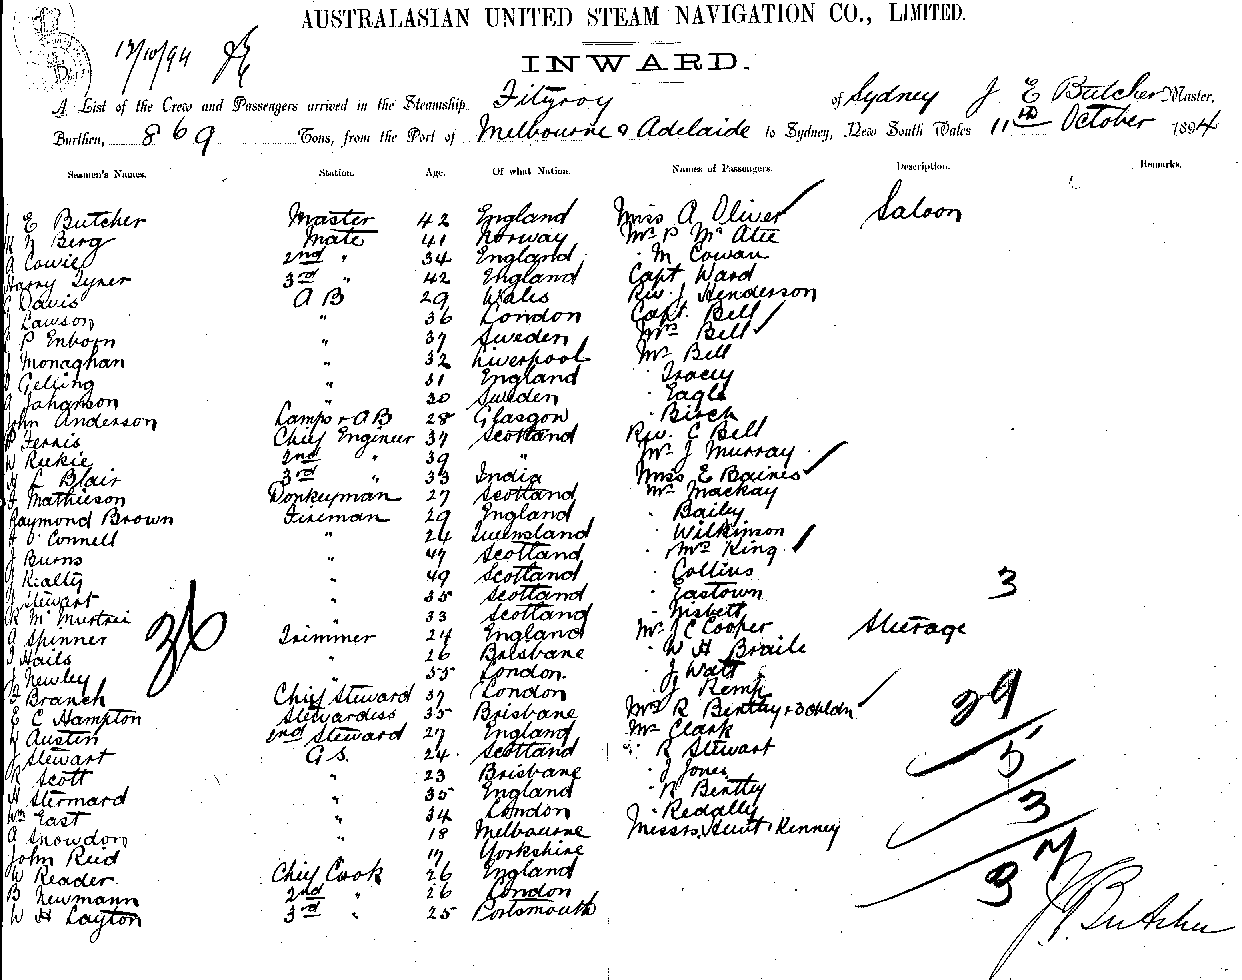 AUSTRALASIAN UNITED STEAM NAVIGATION CO., LIMITED.
13/10/94
INWARD.
A List of the Crew and Passengers arrived in the Steamship Fitzroy of Sydney J E Butcher Master,
Burthen, 869 Tons, from the Port of Melbourne & Adelaide to Sydney, New South Wales 11th October 1894
Seamen's Names. Station. Age. Of what Nation. Names of Passengers. Description. Remarks.
J E Butcher Master 42 England Miss A Oliver Saloon
N Berg Mate 41 Norway Mr P McAtee
A Cowie 2nd " 34 England " M Cowan
Harry Tyner 3rd " 42 England Capt Ward
Davis A B 29 Wales Rev. J Henderson
Lawson " 36 London Capt. Bell
P Enborn " 37 Sweden Mrs Bell
Monaghan " 32 Liverpool Mr Bell
Gelling " 31 England " Tracey
Johanson " 30 Sweden " Eagle
John Anderson Lamps & AB 28 Glasgow " Birch
Ferris Chief Engineer 37 Scotland Rev. C Bell
W Rickie 2nd " 39 " Mr J Murray
L Blair 3rd " 33 India Miss E Baines
Mathieson Donkeyman 27 Scotland Mr Mackay
Raymond Brown Fireman 29 England " Bailey
O'Connell " 24 Queensland " Wilkinson
J Burns " 47 Scotland " Mrs King
Realty " 49 Scotland " Collins
Stewart " 35 Scotland " Eastown 3
R McMurtrie " 33 Scotland " Nisbett
A Spinner Trimmer 24 England Mr J C Cooper Steerage
36
Hails " 26 Brisbane " W H Braile
J Newley " 55 London. " J Watt
Branch Chief Steward 37 London " J Kemp
E C Hampton Stewardess 35 Brisbane Mrs R Bentley & 3 chldn 29
Austin 2nd Steward 27 England Mr Clark
J Stewart G.S. 24 Scotland " R Stewart 5
R Scott " 23 Brisbane " J Jones
H Stermard " 35 England " R Bentley 3
Wm East " 34 London " Redally
A Snowdon " 18 Melbourne Messrs Hunt & Kenney
John Reid " 17 Yorkshire
W Reader Chief Cook 26 England 37
B Newmann 2nd " 26 London
W H Layton 3rd " 25 Portsmouth
J E Butcher